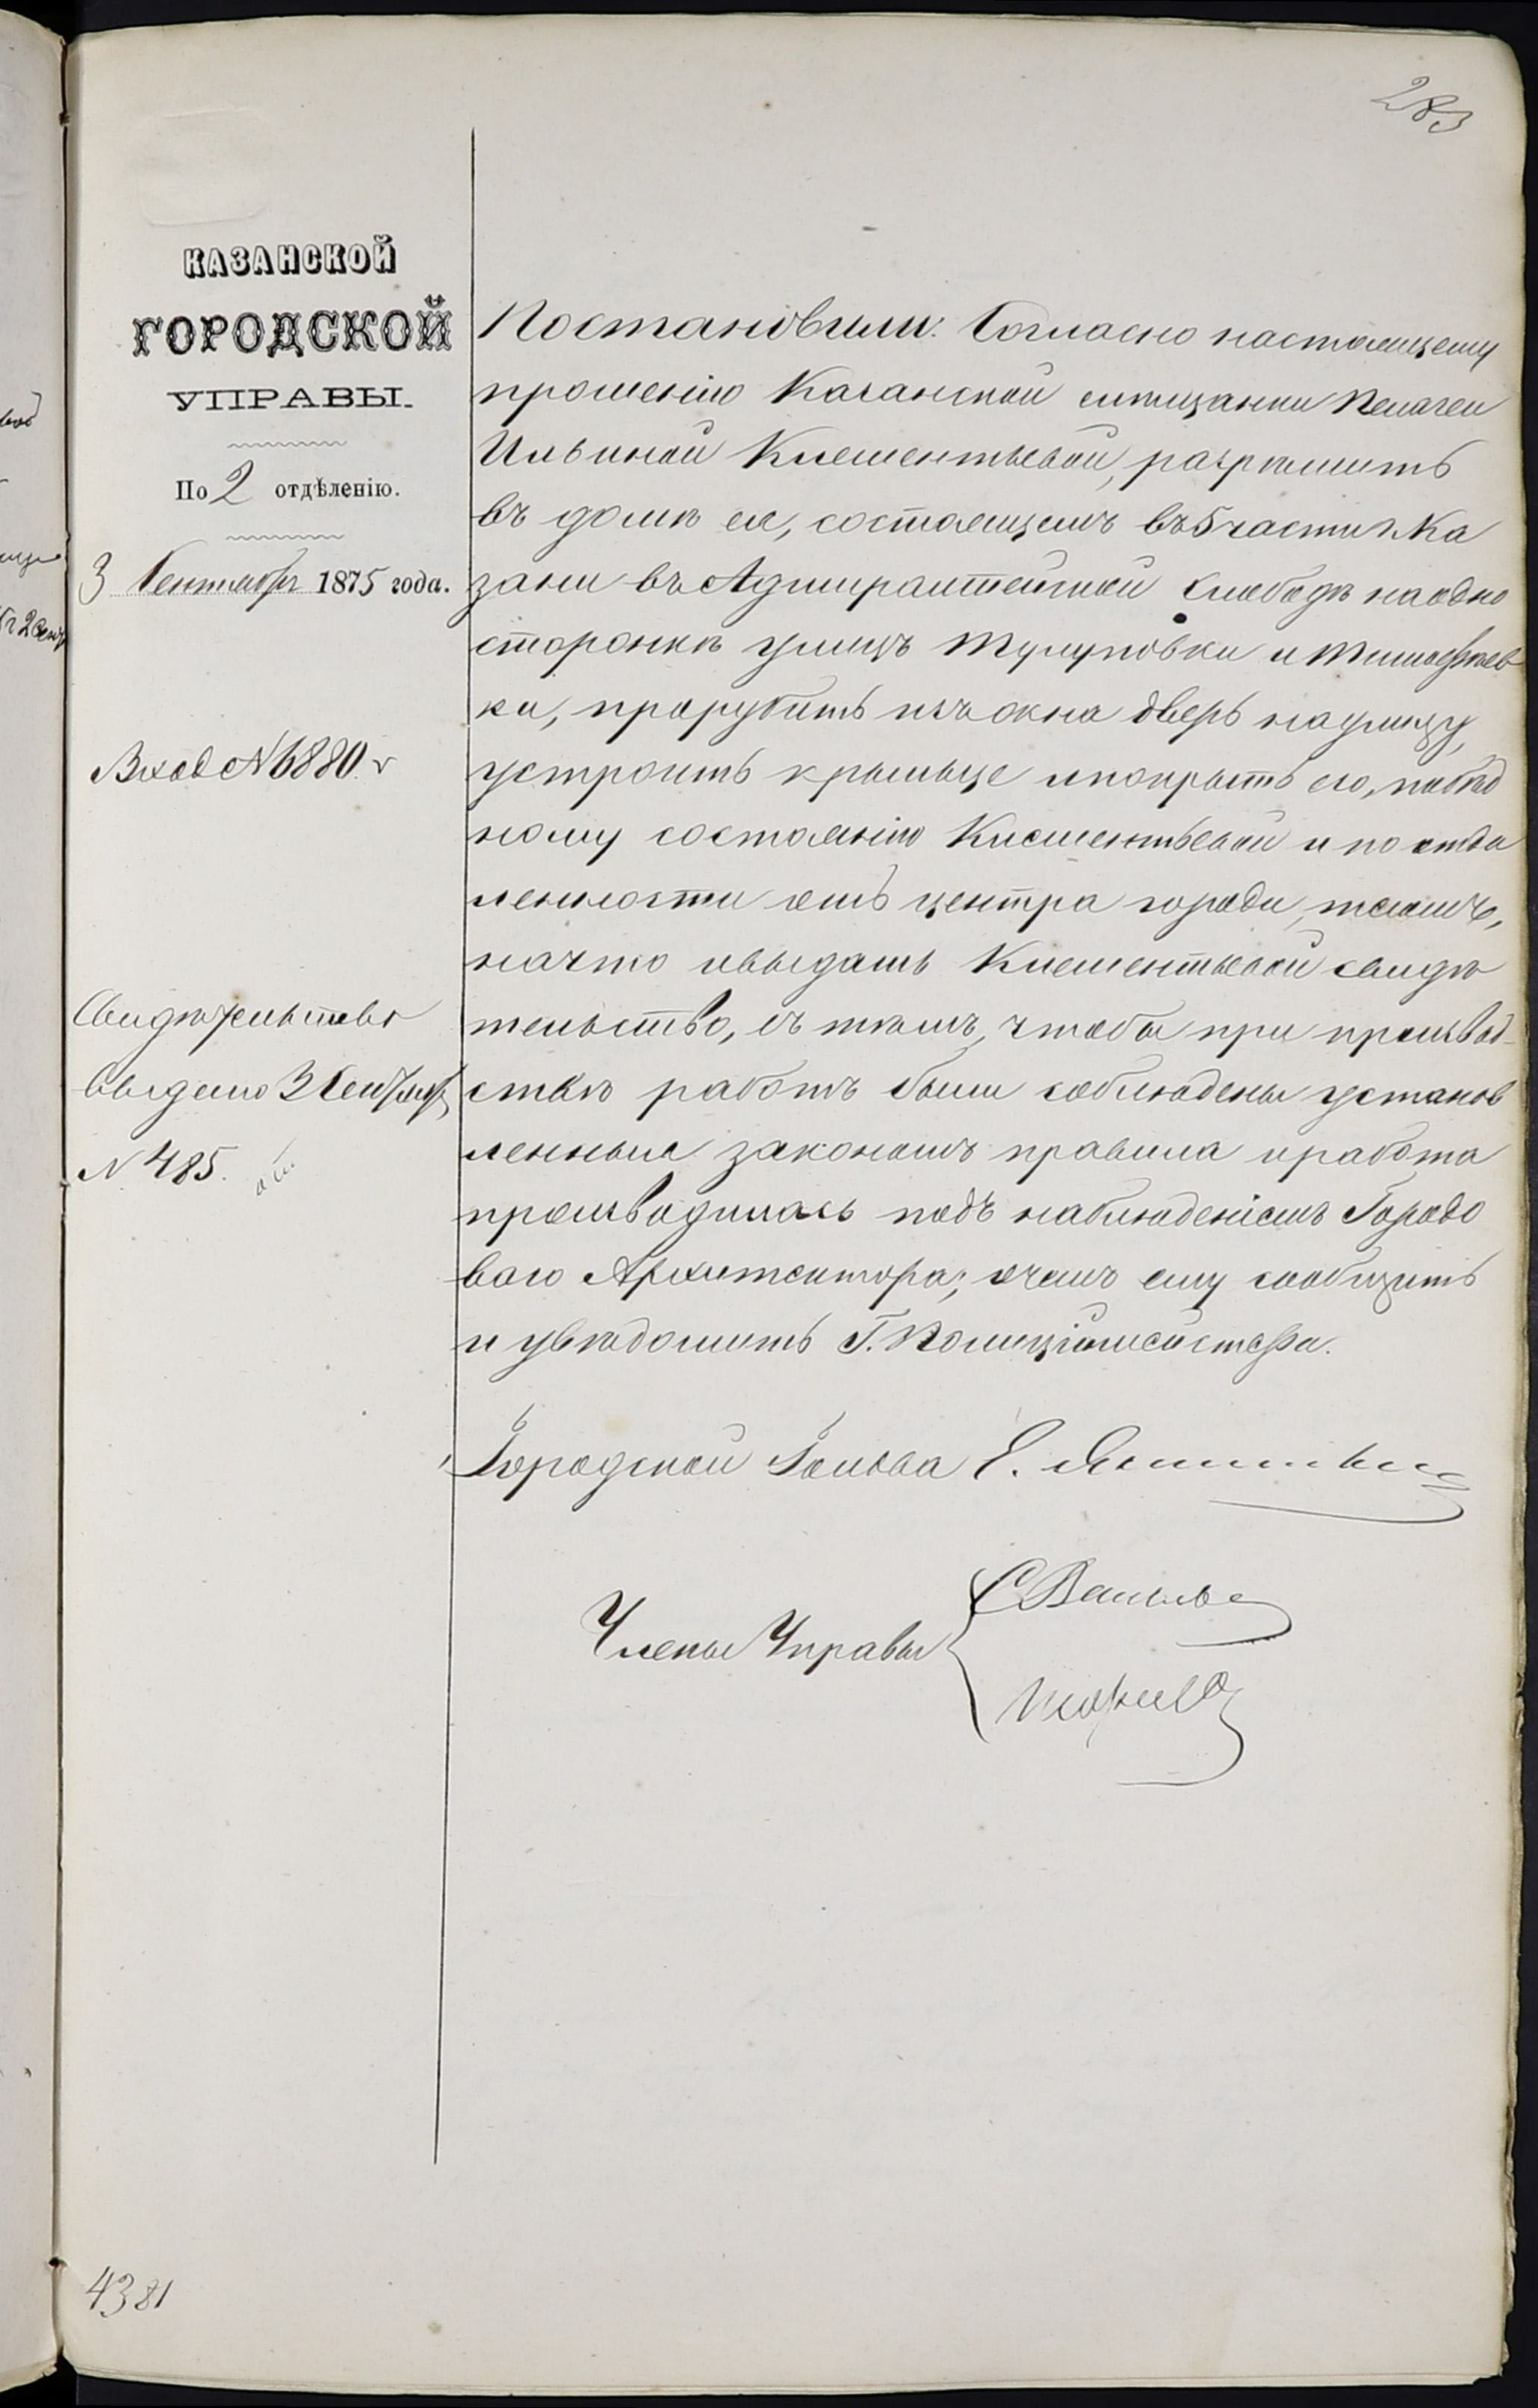 283
КАЗАНСКОЙ
ГОРОДСКОЙ
УПРАВЫ.
По 2 отдѣленію.
3 Сентября 1875 года.
Вход №6880.
Свидѣтельство
выдано 3 Сентября
№ 485.
Постановили: Согласно настоящему
прошенію Казанской мѣщанки Пелагеи
Ильиной Клементьевой, разрѣшить
въ домѣ ея, состоящемъ въ 5 части г. Ка
зани въ Адмиралтейской слободѣ на одно
сторонкѣ улицъ Тулуповки и
ки, прорубить изъ окна дверь на улицу,
устроить крыльце и покрыть его, по бѣд
ному состоянію Клементьевой и по отда
ленности отъ центра города, тесомъ,
на что и выдать Клементьевой свидѣ
тельство, съ тѣмъ, чтобы при производ-
ствѣ работъ были соблюдены установ
ленныя закономъ правила и работа
производилась подъ наблюденіемъ Городо
ваго Архитектора; о чемъ ему сообщить
и увѣдомить Г. Полиціймейстера.
Городской Голова Е.
Члены Управы
4381